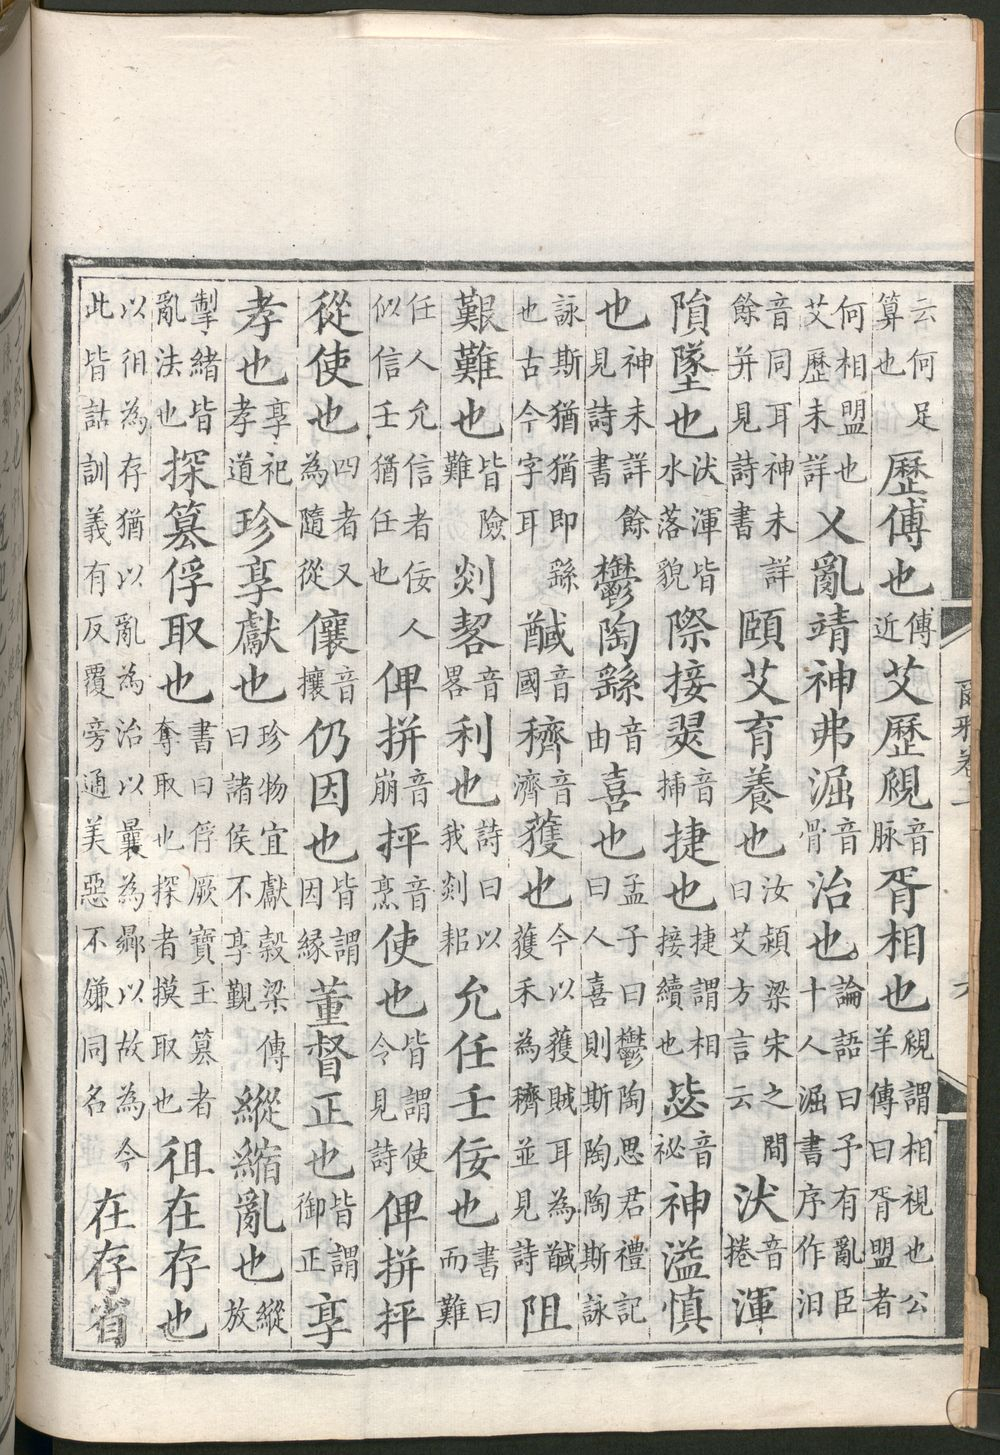 云何足算也歷傅也傅近艾歷覛音脉胥相也覛謂相視也公羊傳曰胥盟者
何相盟也艾歷未詳乂亂靖神弗淈音骨治也論語曰予有亂臣十人淈書序作汩
音同耳神未詳餘并見詩書頤艾育養也汝潁梁宋之間曰艾方言云汱音捲渾
隕墜也汱渾皆水落貌際接翜音插捷也捷謂相接續也毖音祕神溢慎
也神未詳餘見詩書鬱陶繇音由喜也孟子曰鬱陶思君禮記曰人喜則斯陶陶斯詠
詠斯猶猶即繇也古今字耳馘音國穧音濟獲也今以獲賊耳為馘獲禾為穧並見詩阻
艱難也皆險難剡䂮音畧利也詩曰以我剡耜允任壬佞也書曰而難
任人允信者佞人似信壬猶任也俾拼音崩抨音烹使也皆謂使令見詩俾拼抨
從使也四者又為隨從儴音攘仍因也皆謂因緣董督正也皆謂御正享
孝也享祀孝道珍享獻也珍物宜獻穀梁傳曰諸侯不享覲縱縮亂也縱放
掣緒皆亂法也探篡俘取也書曰俘厥寶玉篡者奪取也探者摸取也徂在存也
以徂為存猶以亂為治以曩為曏以故為今此皆詁訓義有反覆旁通美惡不嫌同名在存省
爾雅卷上
六